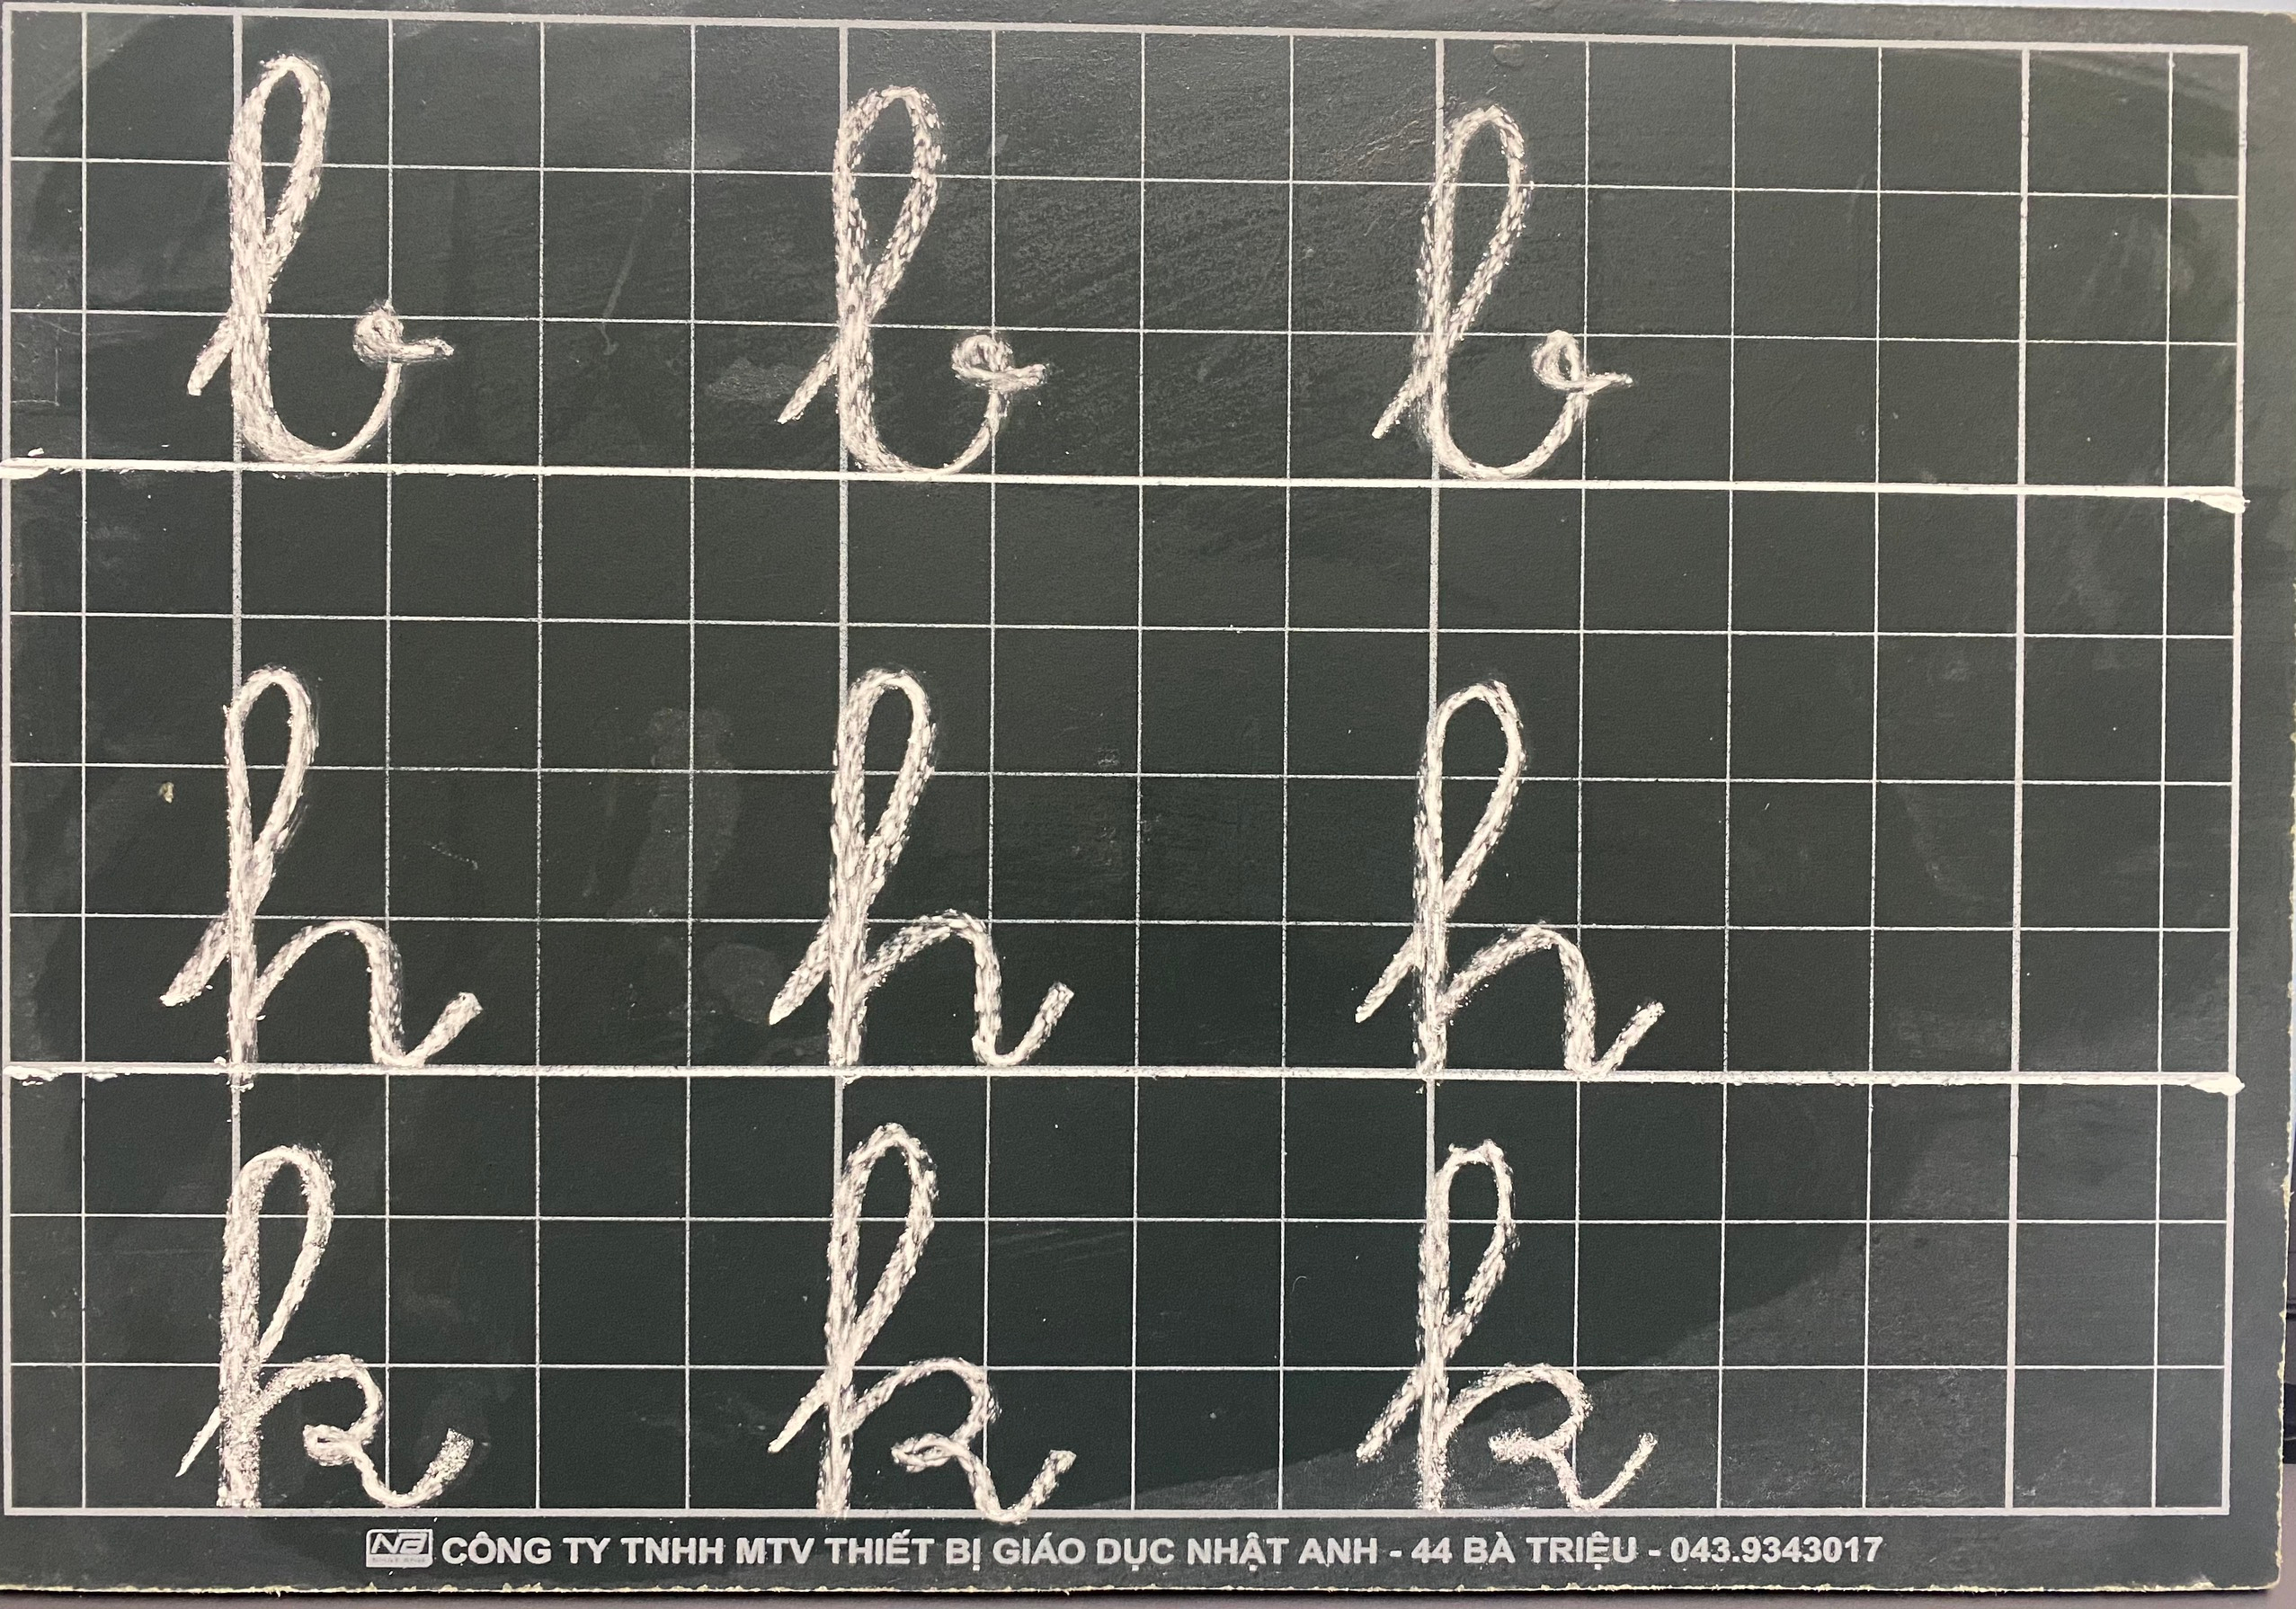 b b b
h h h
k k k
NA CÔNG TY TNHH MTV THIẾT BỊ GIÁO DỤC NHẬT ANH - 44 BÀ TRIỆU - 043.9343017